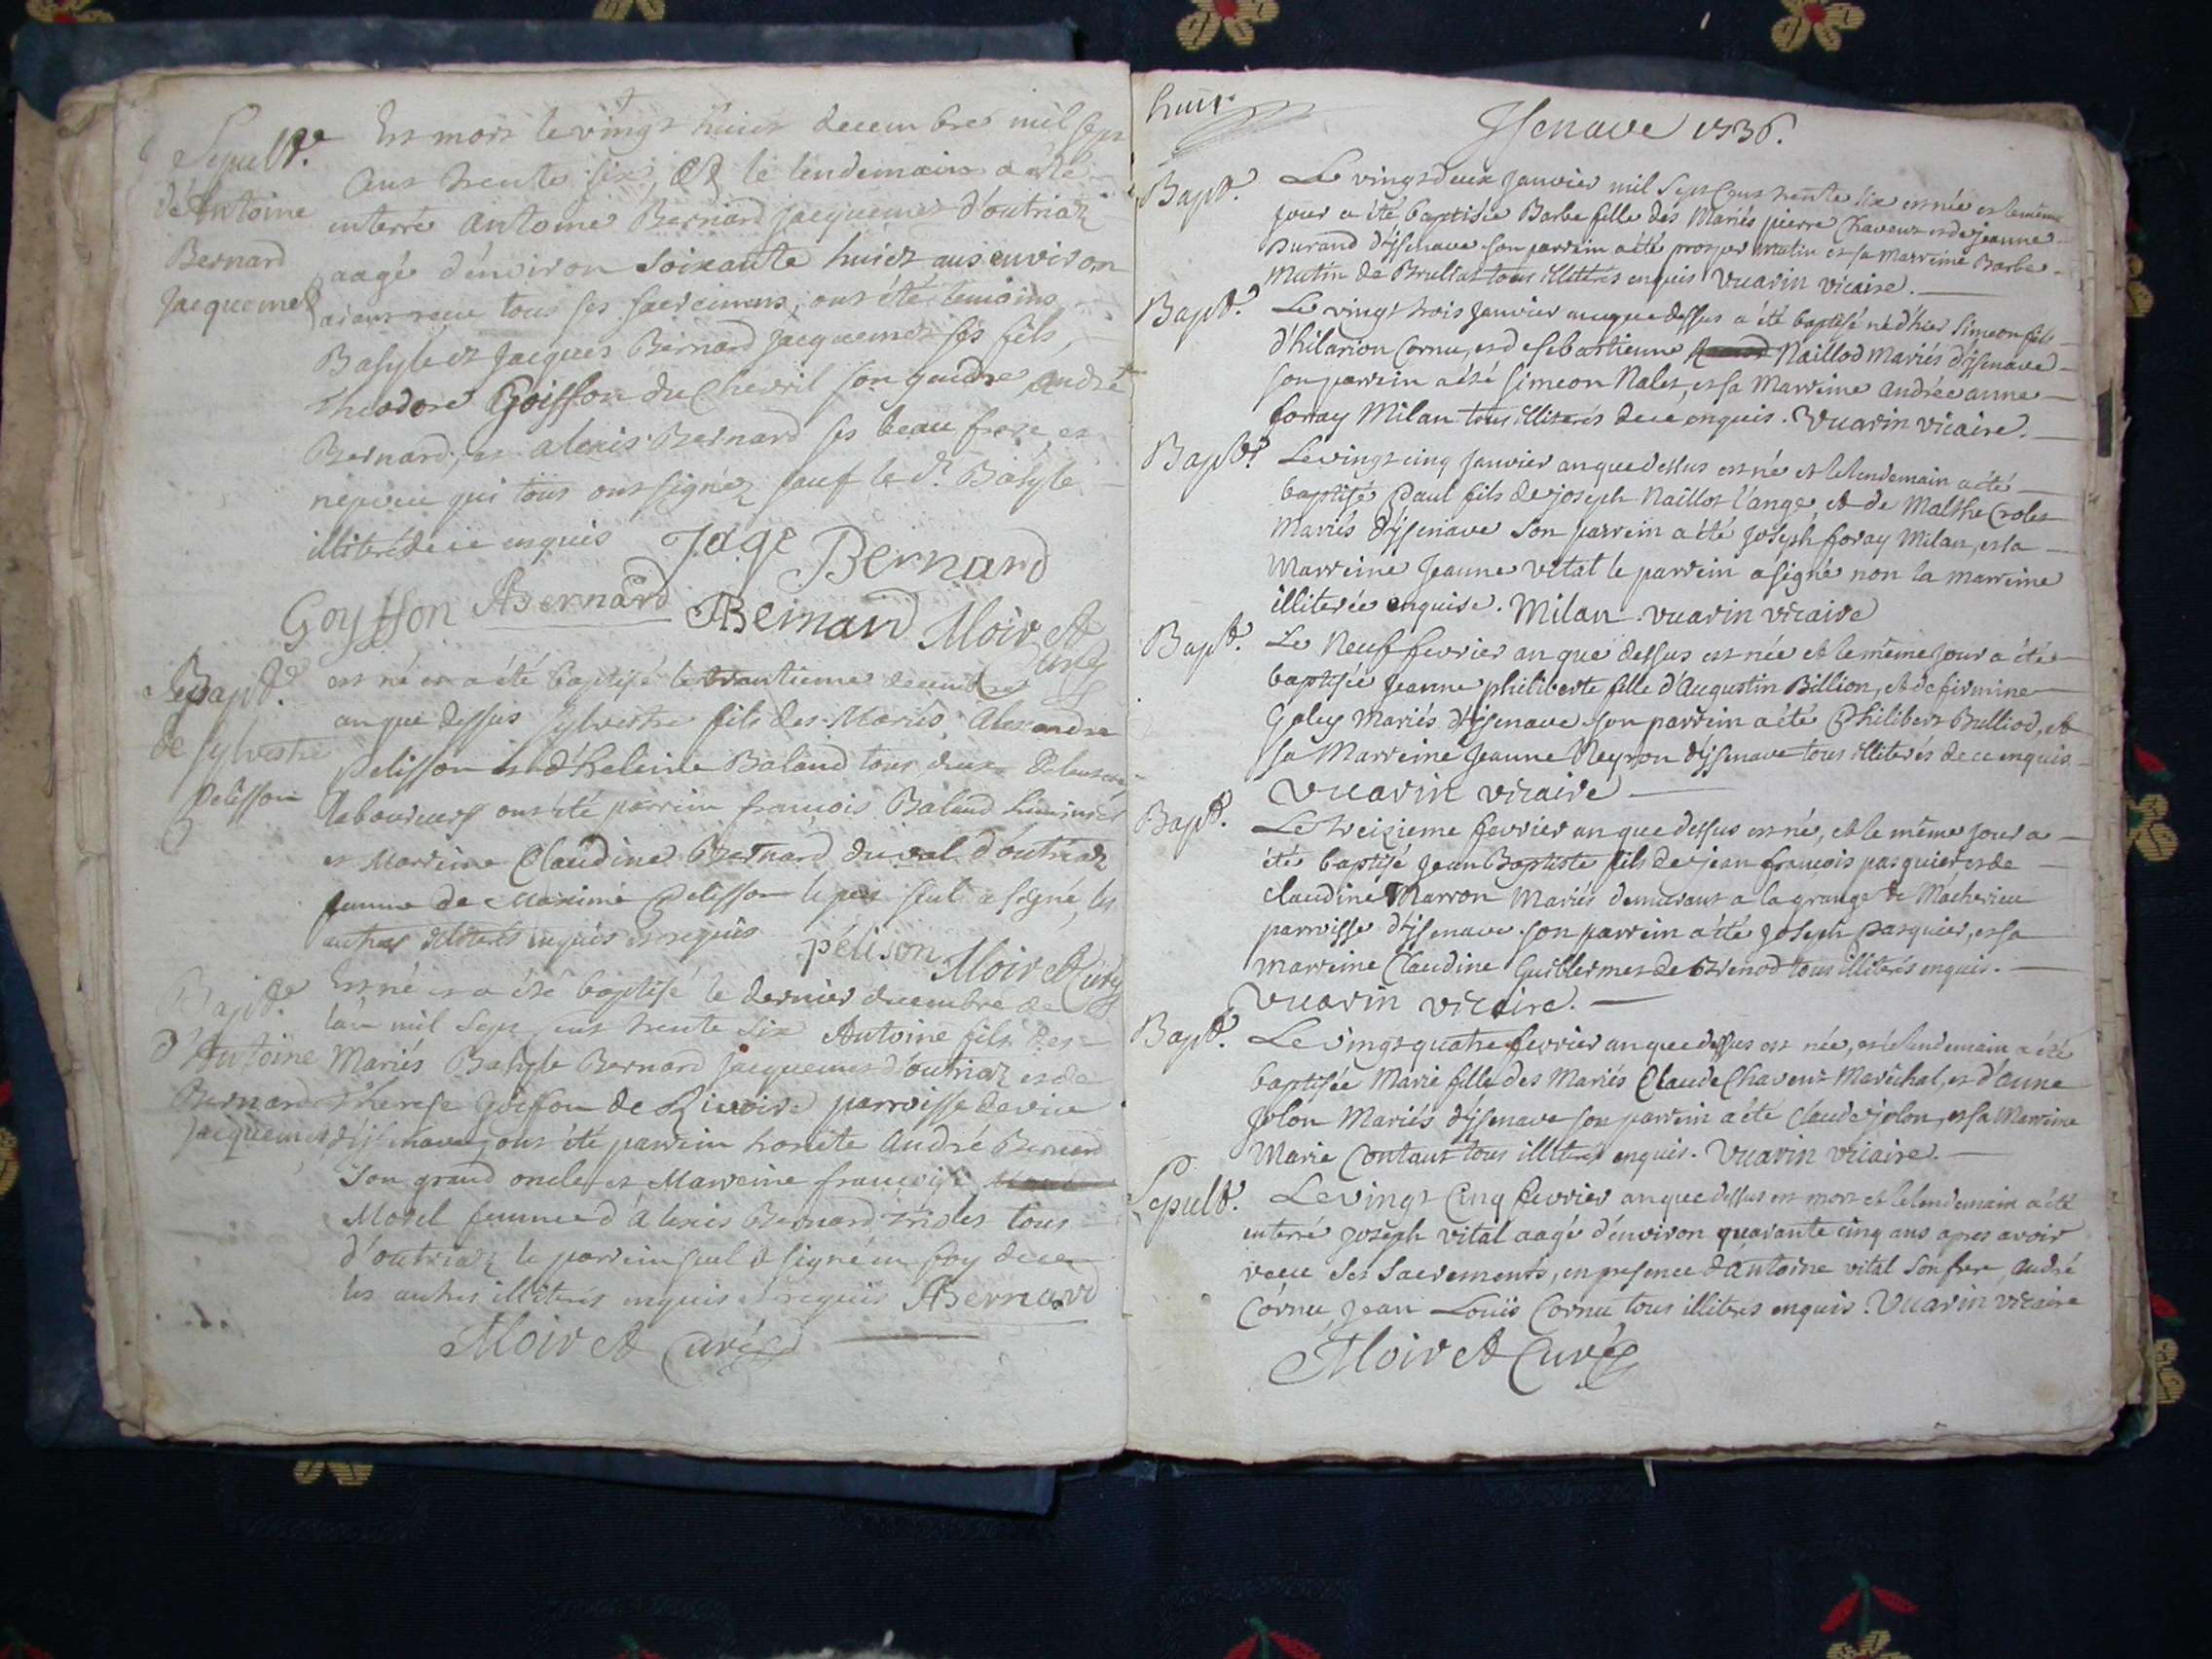 Sepult.e
d'Antoine
Bernard
Jacquemet
Est mort le vingt huict decembre mil sept
cent trente six, et le lendemain a été
enterré antoine Bernard jacquemet d'outriaz
aagé d'environ soixante huict ans environ
aiant receu tous ses sacremens, ont été temoins
Basyle et Jacques Bernard jacquemet ses fils,
Theodore Goisson du Chevril son gendre, André
Bernard, et alexis Bernard ses beau frere, et
neveu qui tous ont signéz sauf le d.t Basyle
illiteré de ce enquis Jaqe Bernard
Goysson ABernard ABernard Moiret
Curé
Bapt.e
de sylvestre
Pelisson
est né et a été baptisé le trantieme decembre
an que dessus sylvestre fils des Mariés Alexandre
pelisson et d'heleine Baland tous deux
laboureurs ont été parrin françois Baland
et Marrine Claudine Bernard du val d'outriaz
femme de Maxime Pelisson le pere seul a signé, les
autres illiterés enquis et requis pélison Moiret Curé
Bapt.e
d'Antoine
Bernard
jacquemet
Est né et a été baptisé le dernier decembre de
l'an mil sept cent trente six Antoine fils des
Mariés Basyle Bernard jacquemet d'outriaz et de
Therese Goisson de Rivoire parroisse
d'jsenave, ont été parrein honete André Bernard
son grand oncle et Marreine françoise
Morel femme d'Alexis Bernard tous
d'outriaz le parrein seul a signé en foy de ce
les autres illiterés enquis et requis ABernard
Moiret Curé
huit
Jsenave 1736.
Bapt.
Le vingt deux janvier mil sept cent trente six est née et le même
jour a été baptisée Barbe fille des Mariés pierre Chavent et de jeanne
Durand d'jsenave son parrein a été prosper Mutin et sa Marreine Barbe
Mutin de Brullat tous illiterés enquis Vuarin vicaire.
Bapt.
Le vingt trois janvier an que dessus a été baptisé né d'hier Simeon fils
d'hilarion Cornu, et de sebastienne Naillod mariés d'jsenave
son parrein a été simeon Nalet, et sa Marreine andrée anne
foray Milan tous illiterés de ce enquis. Vuarin vicaire.
Bapt.
Le vingt cinq janvier an que dessus est né et le lendemain a été
baptisé Paul fils de joseph Naillot l'ange, et de Malthe Crolet
Mariés d'jsenave son parrein a été joseph foray Milan, et sa
Marreine Jeanne vital le parrein a signé non la marreine
illiterée enquise. Milan. vuarin vicaire
Bapt.
Le Neuf fevrier an que dessus est née et le même jour a été
baptisée Jeanne philiberte fille d'Augustin Billion, et de firmine
Galey Mariés d'jsenave son parrein a été Philibert Bulliod, et
sa Marreine Jeanne Neyron d'jsenave tous illiterés de ce enquis
Vuarin vicaire
Bapt.
Le treizieme fevrier an que dessus est né, et le même jour a
été baptisé Jean Baptiste fils de jean françois pasquier et de
claudine Marron Mariés demeurant a la grange de Macherieu
parroisse d'jsenave son parrein a été Joseph pasquier, et sa
marreine Claudine Guillermet de Brenod tous illiterés enquis.
Vuarin vicaire.
Bapt.
Le vingt quatre fevrier an que dessus est née, et le lendemain a été
baptisée Marie fille des Mariés Claude Chavent Maréchal, et d'anne
Jolon Mariés d'jsenave son parrein a été Claude jolon, et sa Marreine
Marie Contant tous illiterés enquis. Vuarin vicaire.
Sepult.
Le vingt Cinq fevrier an que dessus est mort et le lendemain a été
enterré joseph vital aagé d'environ quarante cinq ans apres avoir
receu ses sacrements, en presence d'Antoine vital son frere, André
Cornu, Jean Louis Cornu tous illiterés enquis. Vuarin vicaire
Moiret Curé